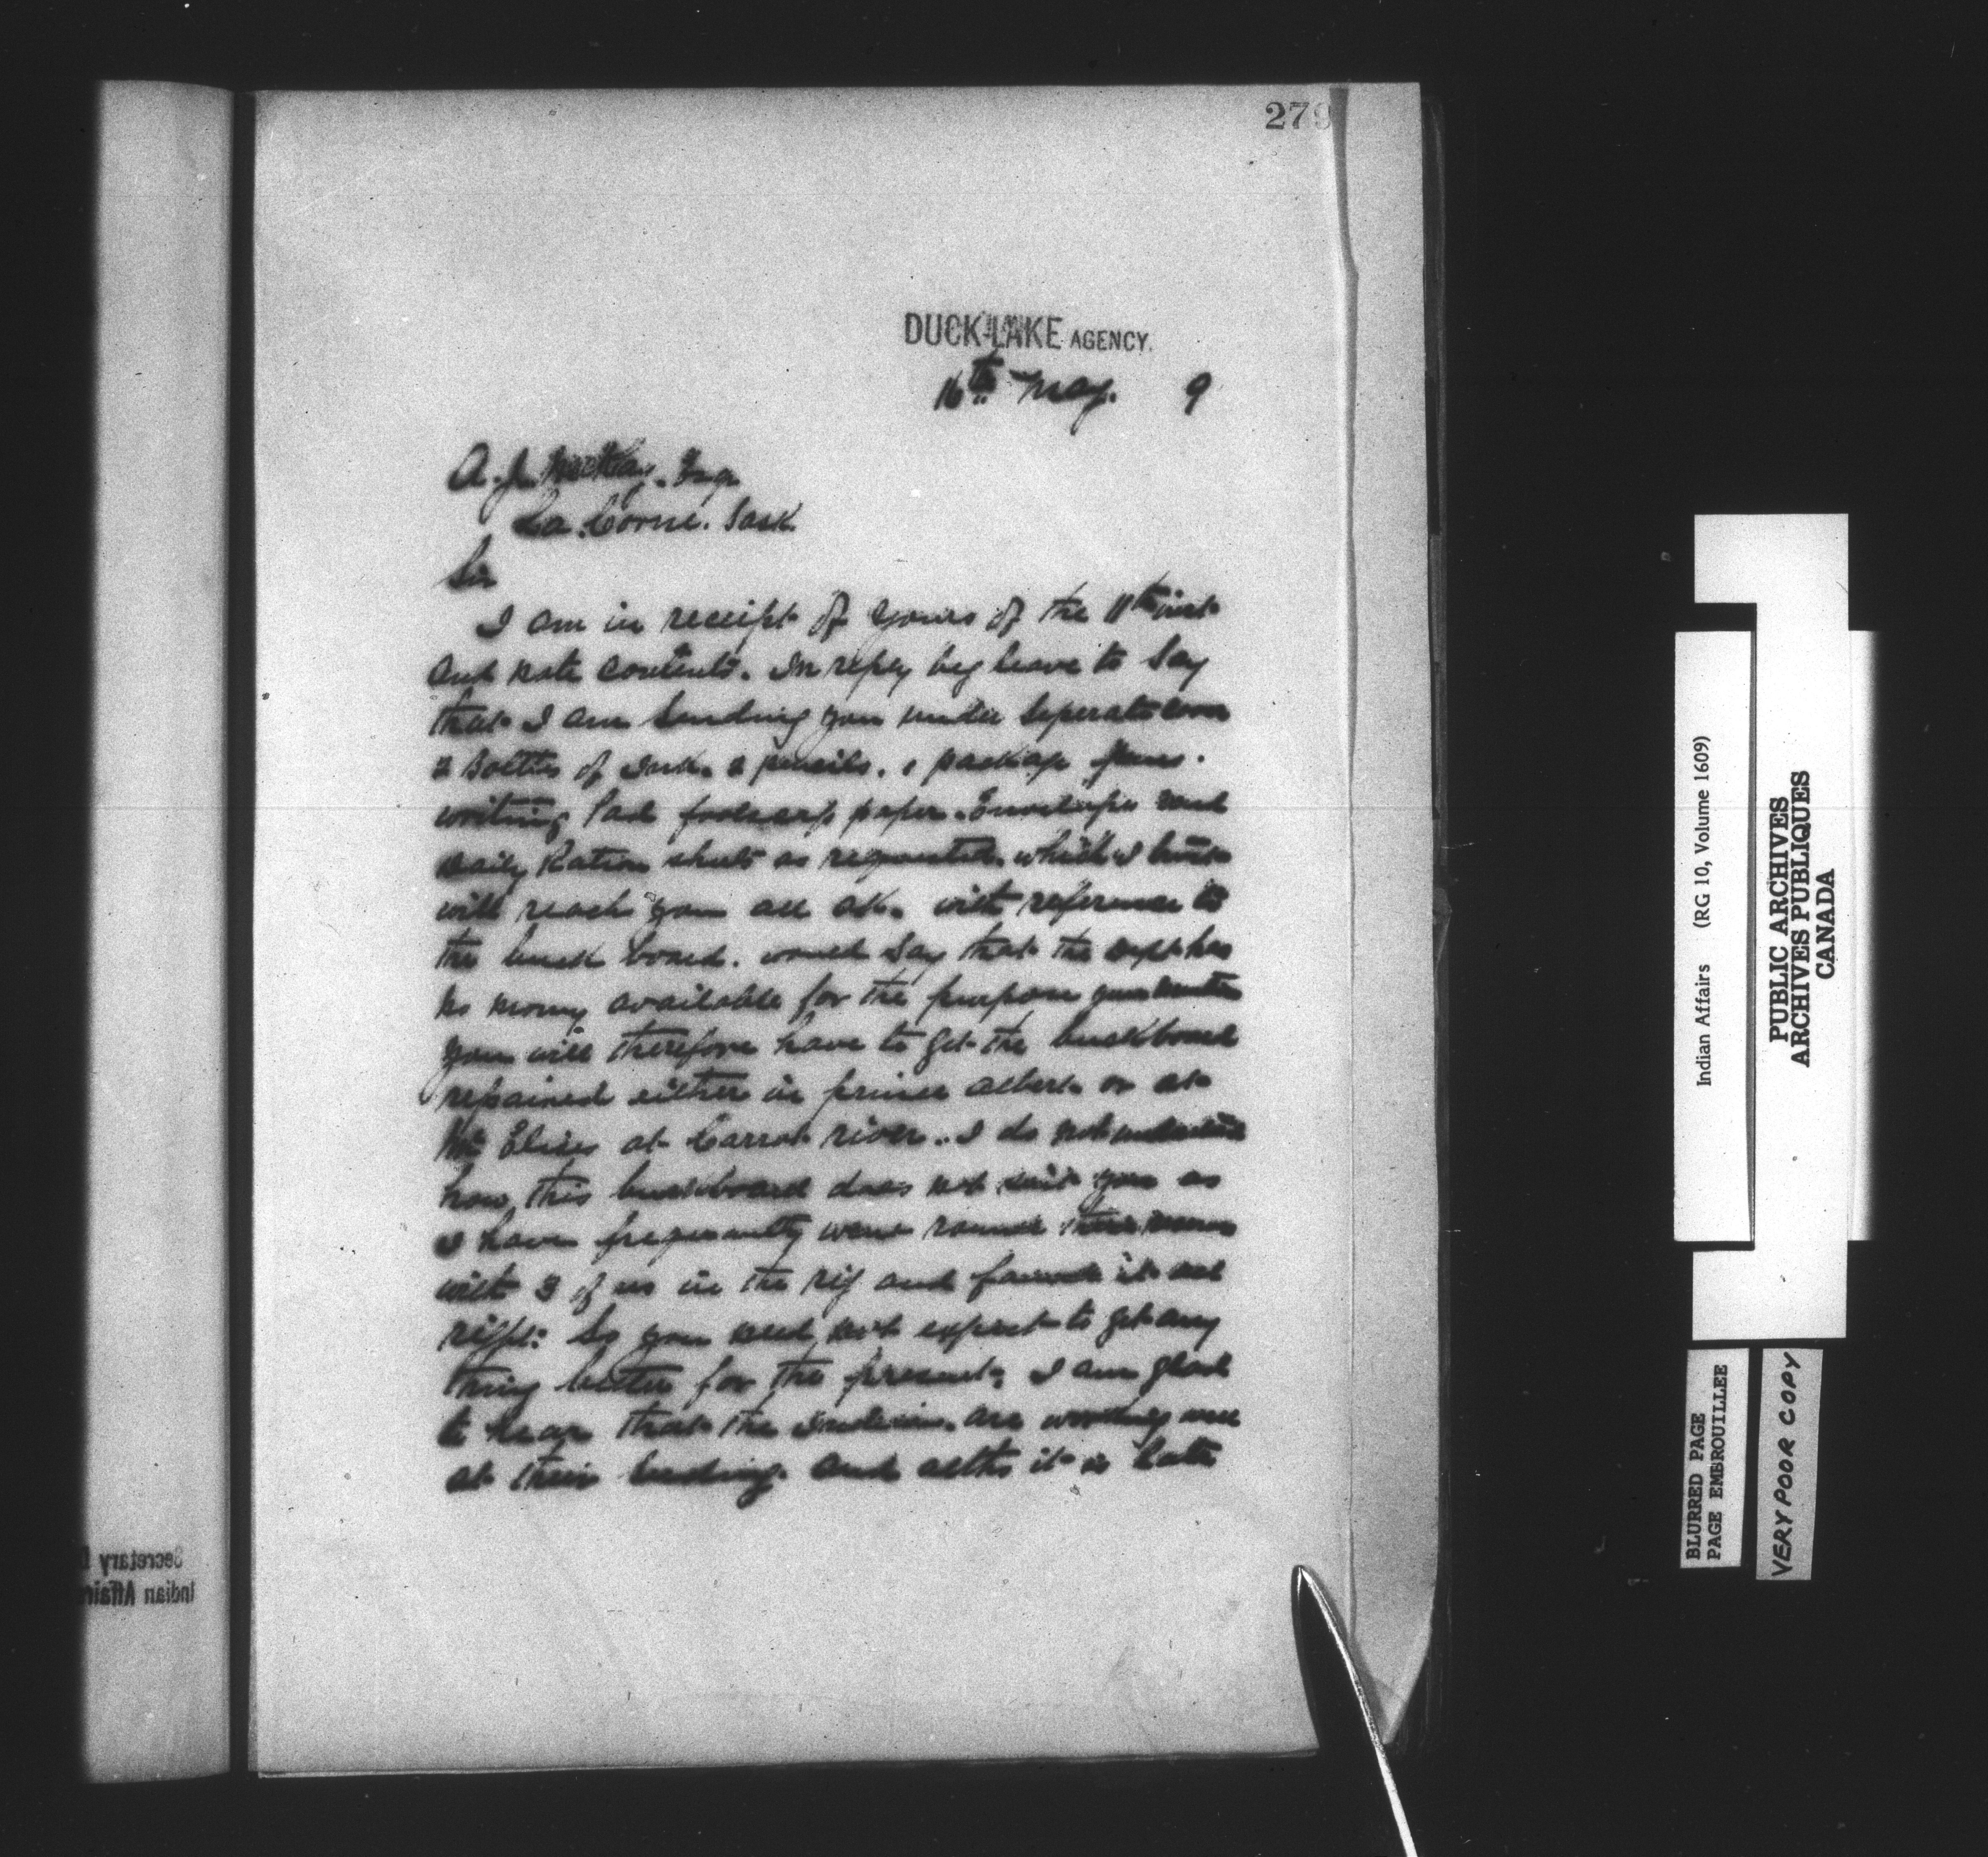 279
DUCK LAKE AGENCY.
16th May. 9
A. J. McKay. Esq.
La. Corne. Sask.
Sir
I am in receipt of yours of the 11th inst
and note contents. In reply beg leave to say
that I am sending you under seperate cover
2 bottles of Ink. 2 pencils. 1 package pens.
writing Pad foolscap paper. Envelopes and
Daily Ration sheets as requested. which I trust
will reach you all ok. with reference to
the buck board. would say that the Dept has
no money available for the purpose
you will therefore have to get the buckboard
repaired either in prince albert. or at
at Carrot river.. I do not understand
how this buckboard does not suit you as
I have frequently went round
with 3 of us in the rig and found it all
right: So you need not expect to get any
thing better for the present. I am glad
to hear that the Indians. are working well
at their seeding. and altho it is late
Secretary
Indian Affairs
Indian Affairs (RG 10, Volume 1609)
PUBLIC ARCHIVES
ARCHIVES PUBLIQUES
CANADA
BLURRED PAGE
PAGE EMBROUILLEE
VERY POOR COPY